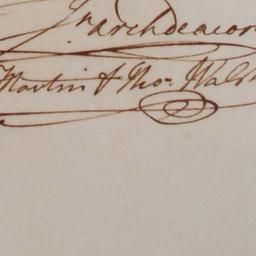 Jn. Archdeacon
Martin & Thos. Walsh